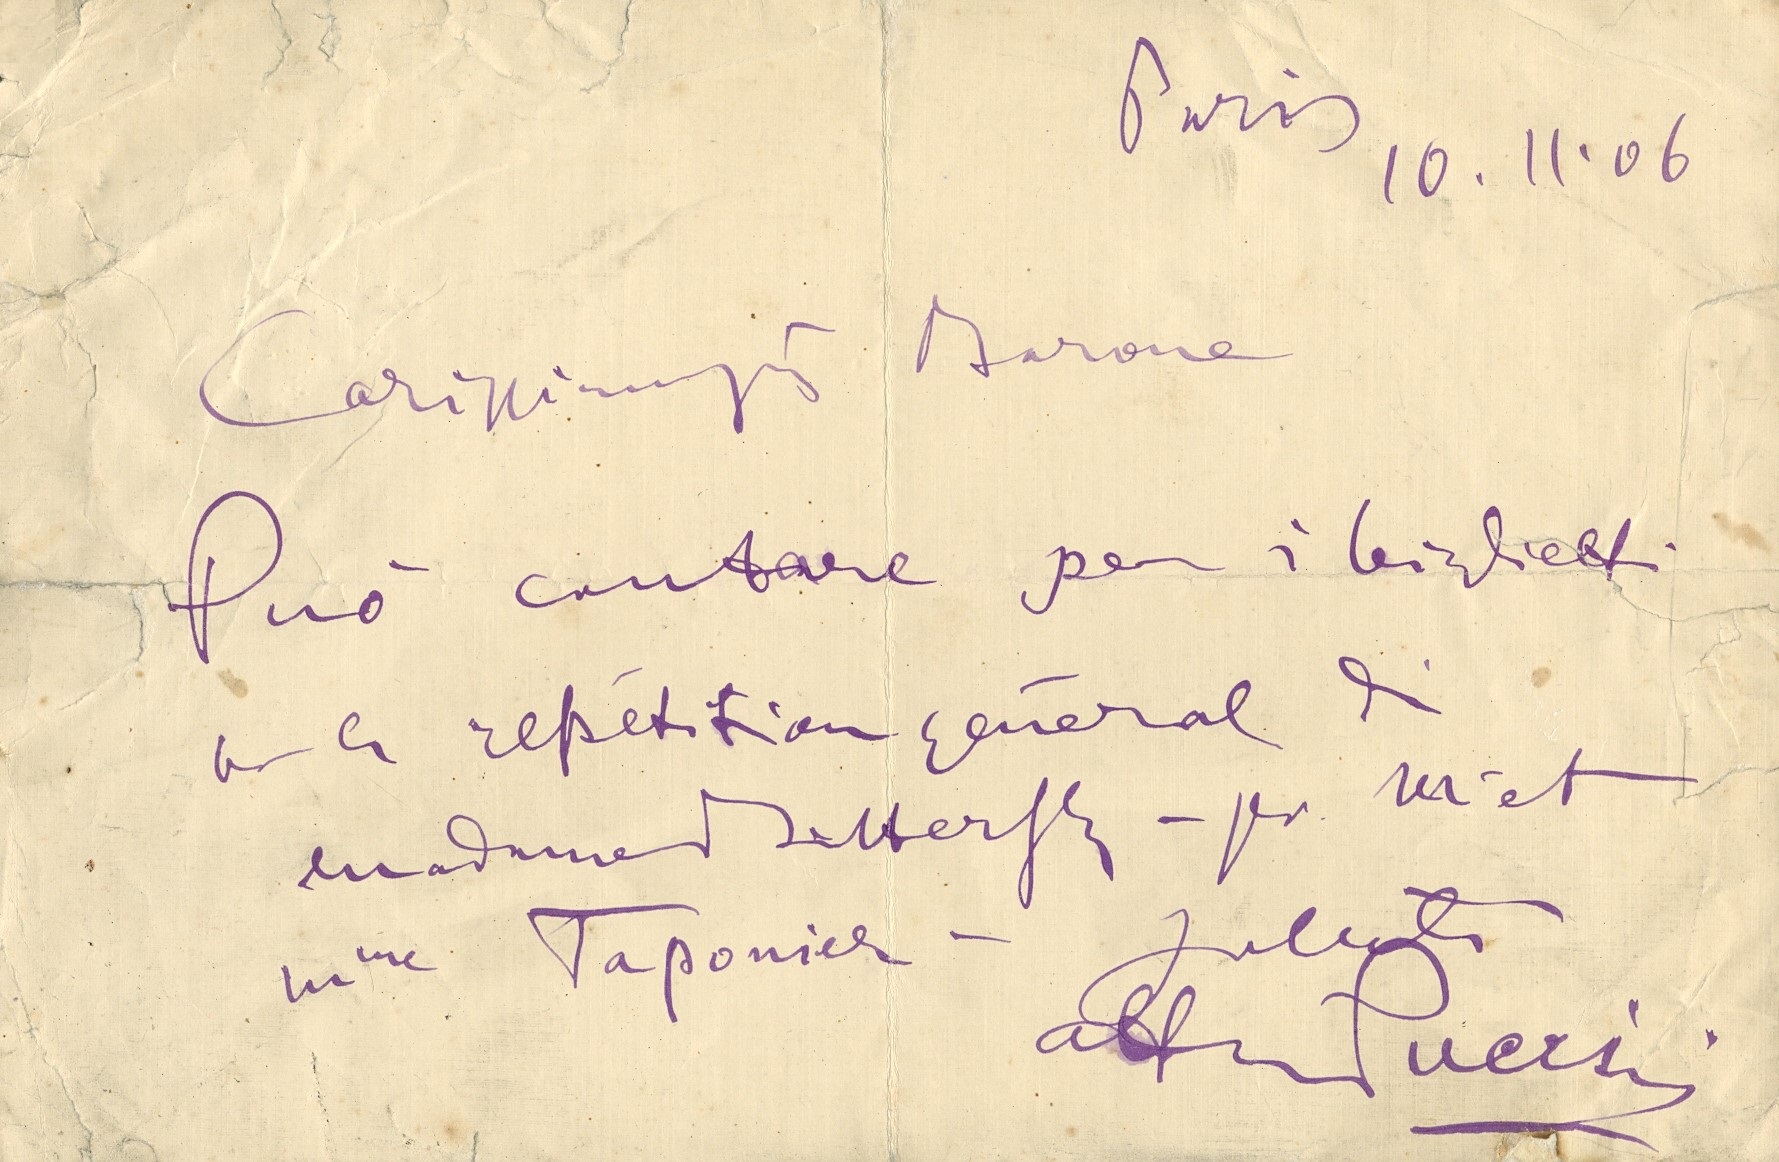 Paris
10.11.06
Carissimo Barone
Può contare per i biglietti
a la répétition général di
madame Butterfly - pr. M et
Mme Taponier - saluti
aff Puccini